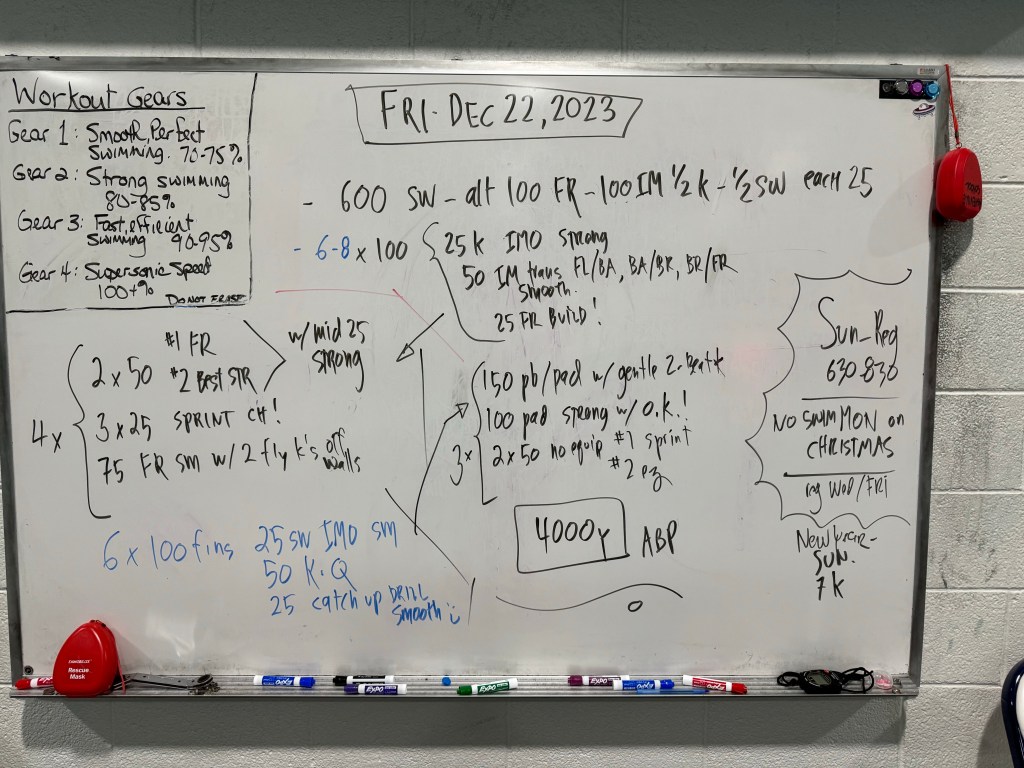 Workout Gears
Gear 1: Smooth, Perfect
Swimming. 70-75%
Gear 2: Strong swimming
80-85%
Gear 3: Fast, efficient
Swimming 90-95%
Gear 4: Supersonic Speed
100+%
DO NOT ERASE
FRI. DEC 22, 2023
- 600 SW - alt 100 FR - 100 IM 1/2 k - 1/2 SW each 25
- 6-8 x 100
25 k IMO strong
50 IM trans FL/BA, BA/BR, BR/FR
smooth.
25 FR BUILD!
4x
2 x 50 #1 FR
#2 Best STR
w/ mid 25
strong
3 x 25 SPRINT CH!
75 FR SM w/ 2 fly k's off
walls
6 x 100 fins 25 SW IMO SM
50 K.Q
25 catch up DRILL
smooth
3x
150 pb/pad w/ gentle 2-beat k
100 pad strong w/ O.K.!
2 x 50 no equip #1 sprint
#2 ez
4000y ABP
Sun_Reg
630-830
NO SWIM MON on
CHRISTMAS
reg WED/FRI
New Year-
SUN.
7k
Rescue
Mask
EXPO
EXPO
EXPO
EXPO